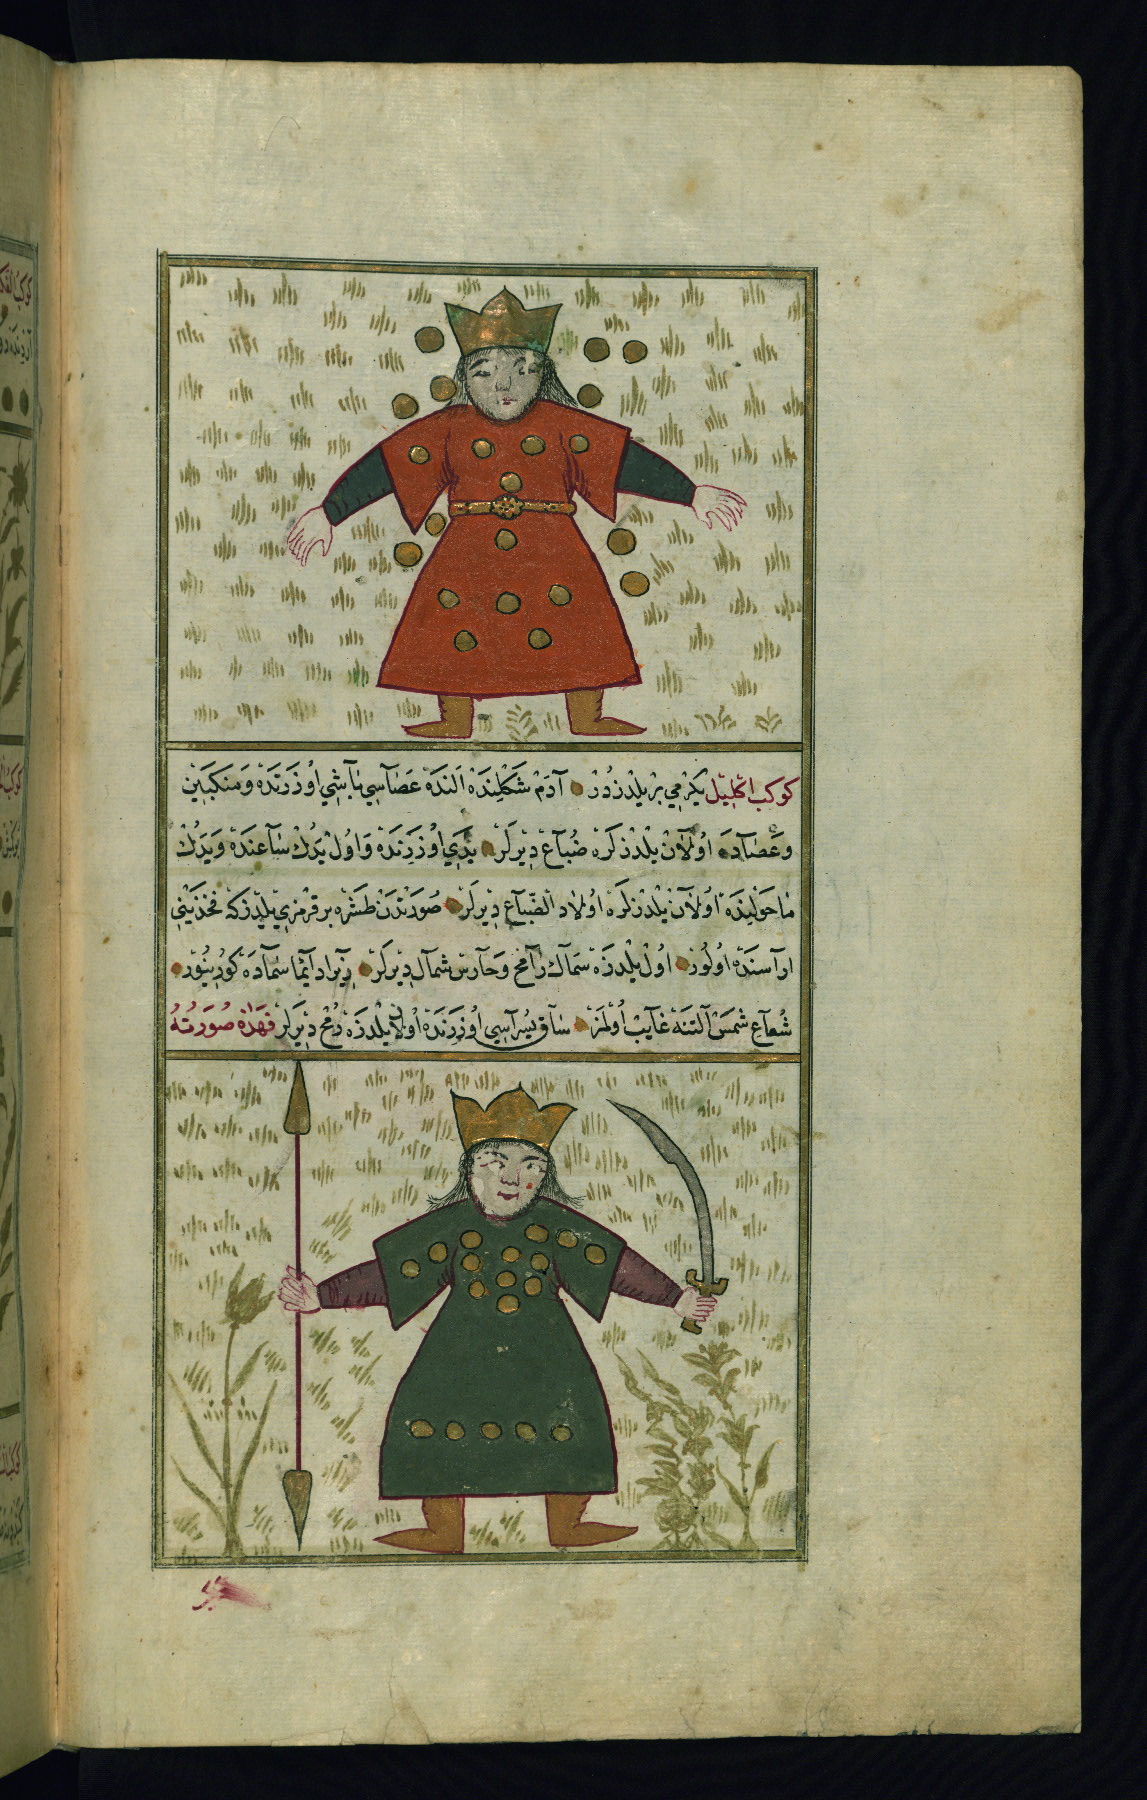 كوكب اكليل يكرمي بر يلدزدر آدم شكلنده النده عصاسي باشي اوزرنده ومنكبين
وعصاده اولان يلدزلره ضباع ديرلر يدي اوزرنده واول يدك ساعدنده ويدك
ما حولنده اولان يلدزلره اولاد الضباع ديرلر صورتدن طشره بر قرمزي يلدز كه فخذينى
اراسنده اولور اول يلدزه سماك رامح وحارس شمال ديرلر زيرا دايما سماده كورينور
شعاع شمس التنه غايب اولمز ساق يسراسي اوزرنده اولان يلدزه رمح ديرلر فهذه صورته